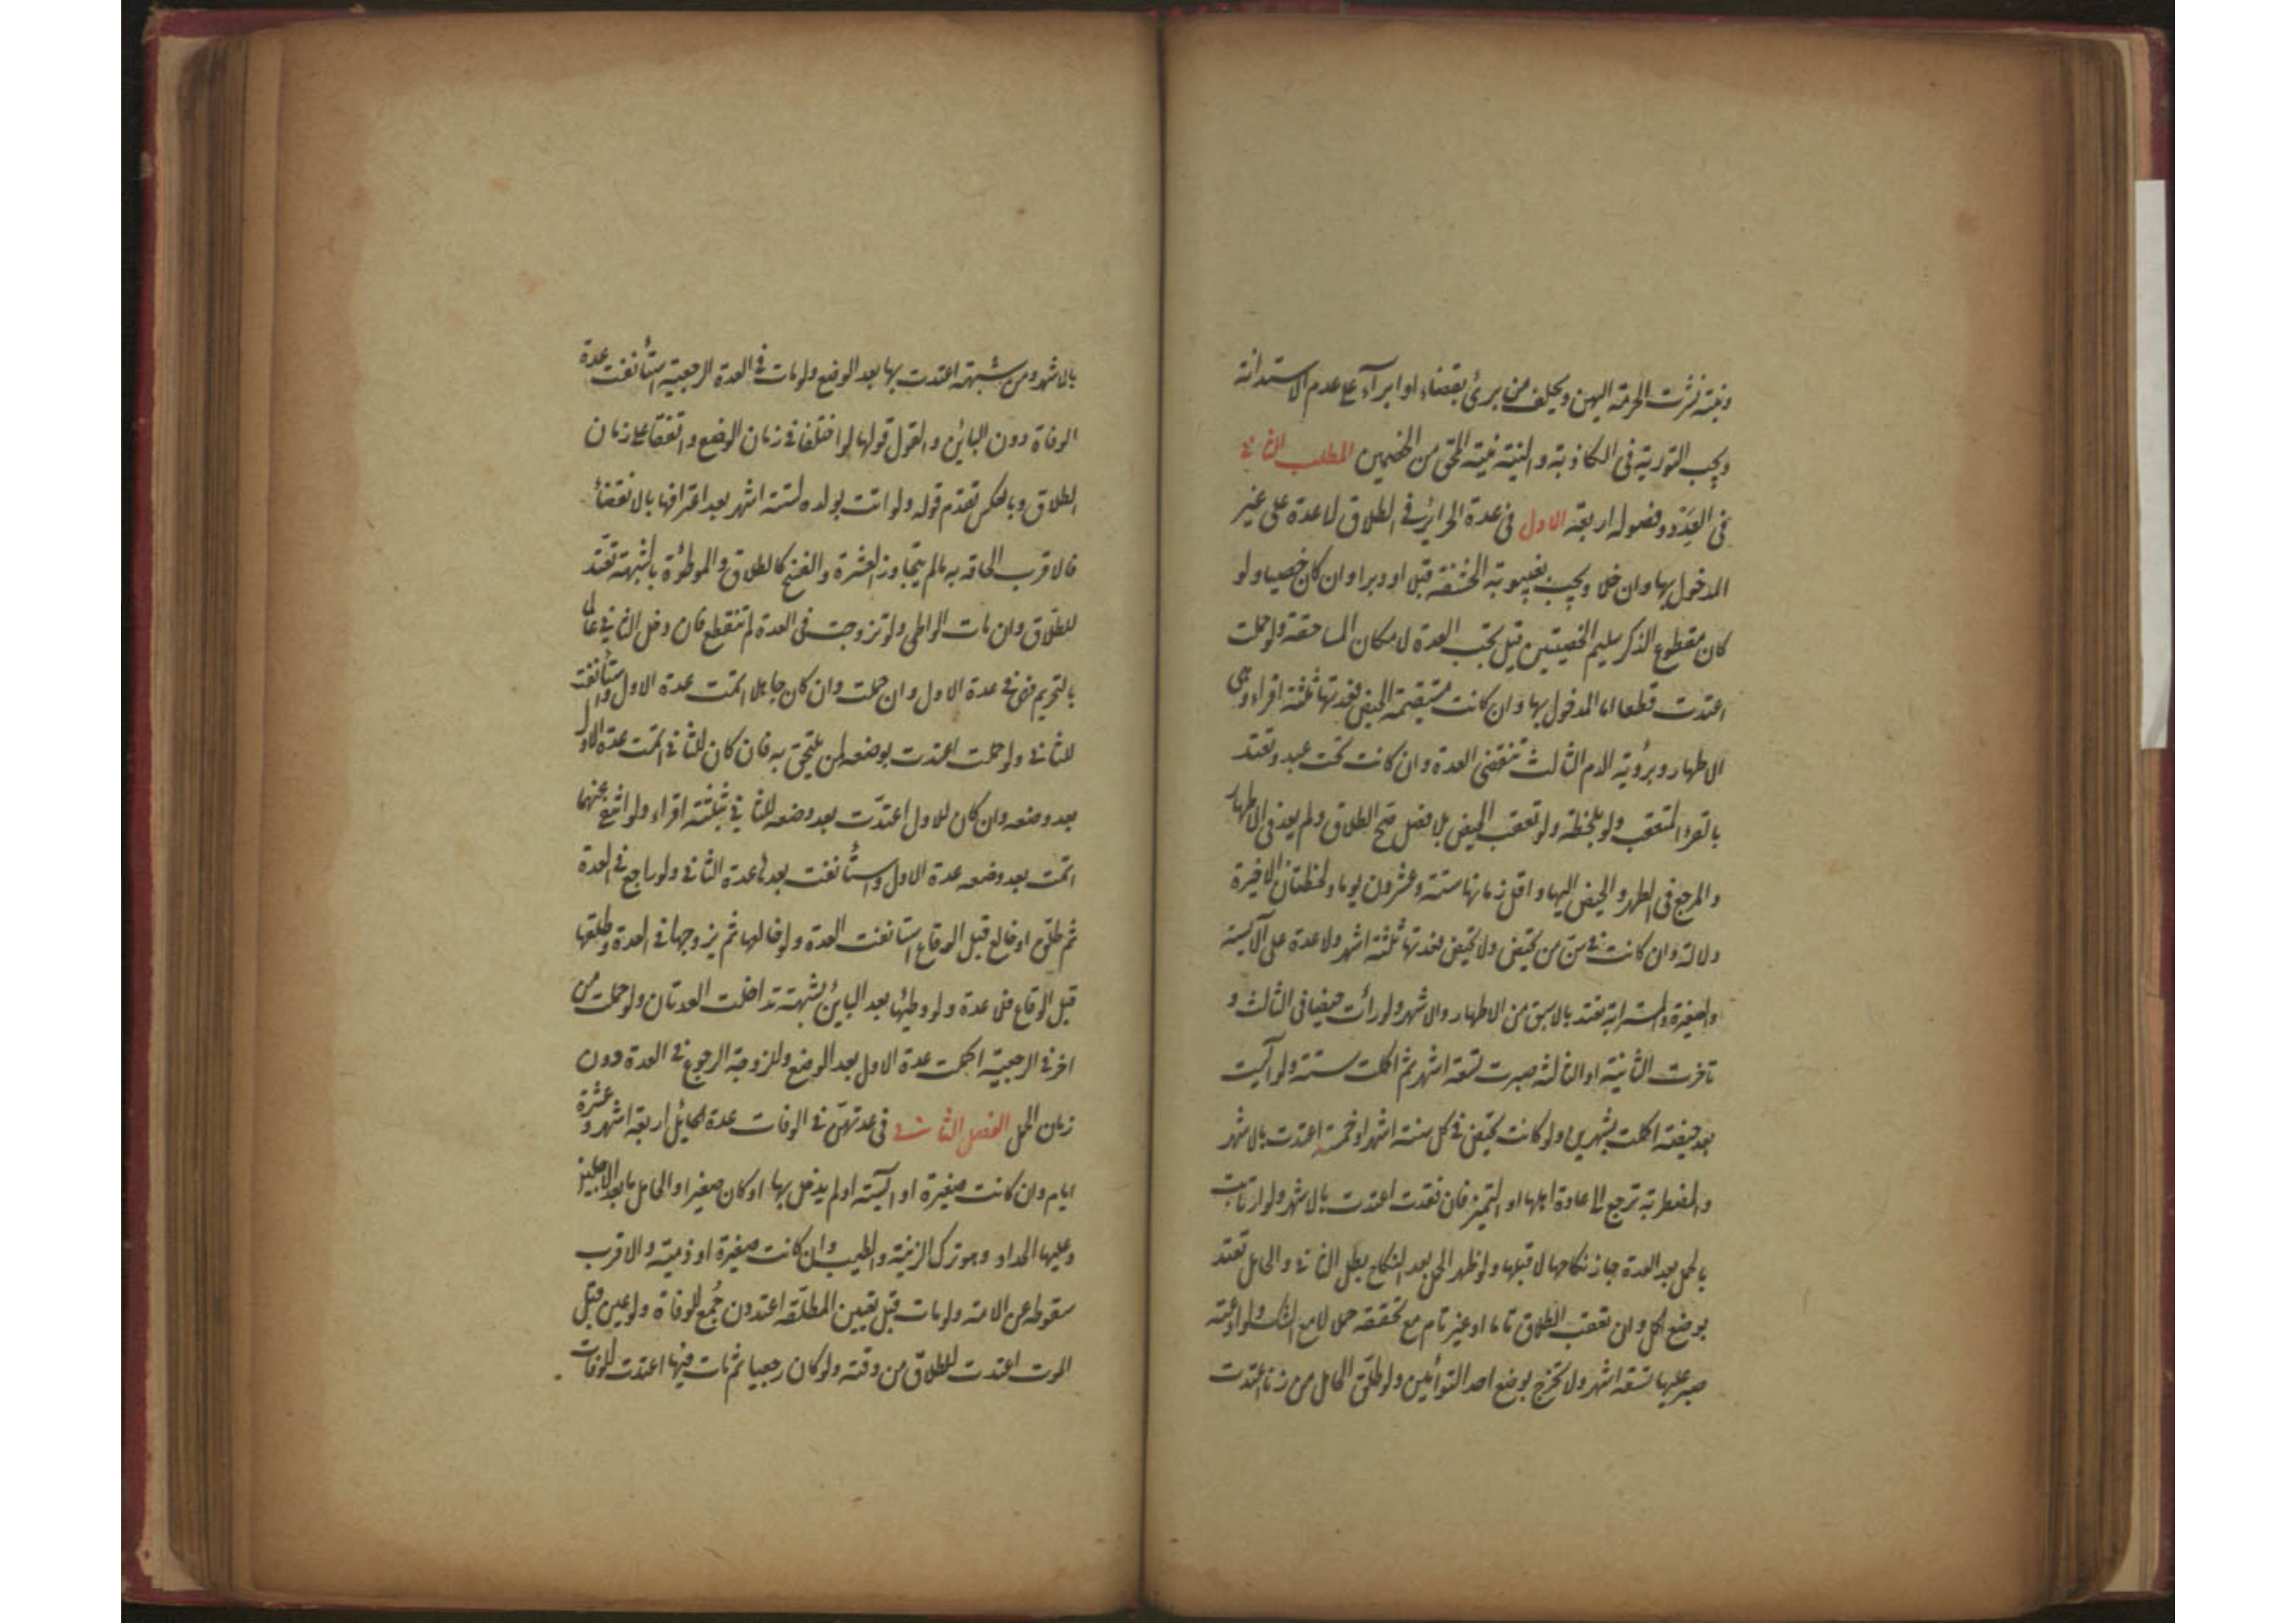 ونيته نشرت الحرمة اليهن ويحلف من برئ بقضاء او ابرآء على عدم الاستدانة
ويجب التورية فى الكاذبة والنية نية المحق من الخصمين المطلب الثانى
فى العِدَد وفصوله اربعة الاول فى عدة الحرائر فى الطلاق لا عدة على غير
المدخول بها وان خلا ويجب بغيبوبة الحشفة قبلا او دبرا وان كان خصيا ولو
كان مقطوع الذكر سليم الخصيتين قيل تجب العدة لامكان المساحقة ولو حملت
اعتدت قطعا اما المدخول بها وان كانت مستقيمة الحيض فعدتها ثلثة اقراء وهى
الاطهار وبرؤية الدم الثالث تنقضى العدة وان كانت تحت عبد وتعتد
بالقرء المتعقب ولو بلحظة ولو تعقب الحيض بلا فصل صح الطلاق ولم يعد فى الاطهار
والمرجع فى الطهر والحيض اليها واقل زمانها ستة وعشرون يوما ولحظتان الاخيرة
دلالة وان كانت فى سن من تحيض ولا تحيض فعدتها ثلثة اشهر ولا عدة على الآيسة
والصغيرة والمسترابة تعتد بالاسبق من الاطهار والاشهر ولو رأت حيضا فى الثالث و
تاخرت الثانية او الثالثة صبرت تسعة اشهر ثم اكملت سنة ولو آيست
بعد حيضة اكملت بشهرين ولو كانت تحيض فى كل ستة اشهر او خمسة اعتدت بالاشهر
والمضطربة ترجع الى عادة اهلها او التميز فان فقدت اعتدت بالاشهر ولو ارتابت
بالحمل بعد العدة جاز نكاحها لا قبلها ولو ظهر الحمل بعد النكاح بطل الثانى والحامل تعتد
بوضع الحمل وان تعقب الطلاق تاما او غير تام مع تحققه حملا لا مع الشك ولو ادعته
صبر عليها تسعة اشهر ولا تخرج بوضع احد التوأمين ولو طلق الحامل من زنا اعتدت
بالاشهر ومن شبهة اعتدت بها بعد الوضع ولو مات فى العدة الرجعية استأنفت عدة
الوفاة دون البائن والقول قولها لو اختلفا فى زمان الوضع واتفقا على زمان
الطلاق وبالعكس تقدم قوله ولو اتت بولد لستة اشهر بعد اعترافها بالانقضاء
فالاقرب الحاقه به ما لم يتجاوز العشرة والفسخ كالطلاق والموطوءة بالشبهة تعتد
للطلاق وان مات الواطى ولو تزوجت فى العدة لم تنقطع فان دخل الثانى عالما
بالتحريم فهى فى عدة الاول وان حملت وان كان جاهلا اتمت عدة الاول واستأنفت
للثانى ولو حملت اعتدت بوضعه لمن يلتحق به فان كان للثانى اتمت عدة الاول
بعد وضعه وان كان للاول اعتدّت بعد وضعه للثانى بثلثة اقراء ولو انتفى عنهما
اتمت بعد وضعه عدة الاول واستأنفت بعدها عدة الثانى ولو راجع فى العدة
ثم طلق او خالع قبل الوقاع استانفت العدة ولو خالعها ثم تزوجها فى العدة وطلقها
قبل الوقاع فلا عدة ولو وطيها بعد البائن لشبهة تداخلت العدتان ولو حملت من
اخر فى الرجعية اكملت عدة الاول بعد الوضع وللزوجة الرجوع فى العدة دون
زمان الحمل الفصل الثانى فى عدتهن فى الوفات عدة الحايل اربعة اشهر وعشرة
ايام وان كانت صغيرة او آيسة او لم يدخل بها او كان صغيرا والحامل بابعد الاجلين
وعليها الحداد وهو ترك الزينة والطيب وان كانت صغيرة او ذمية والاقرب
سقوطه عن الامة ولو مات قبل تعيين المطلقة اعتددن جُمع للوفاة ولو عين قبل
الموت اعتدت للطلاق من وقته ولو كان رجعيا ثم مات فيها اعتدت للوفات